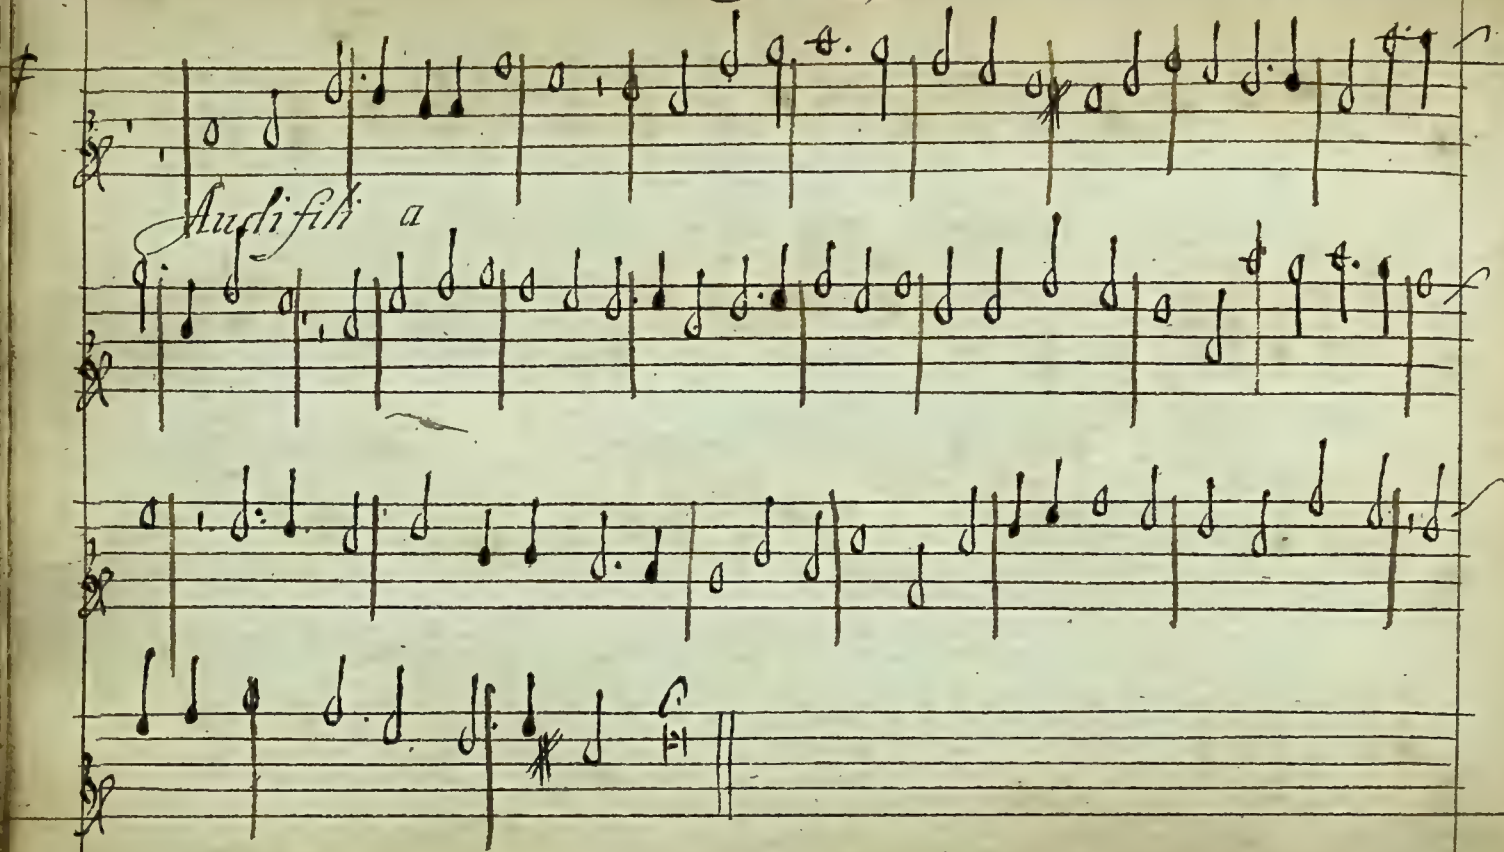 Audi fili a